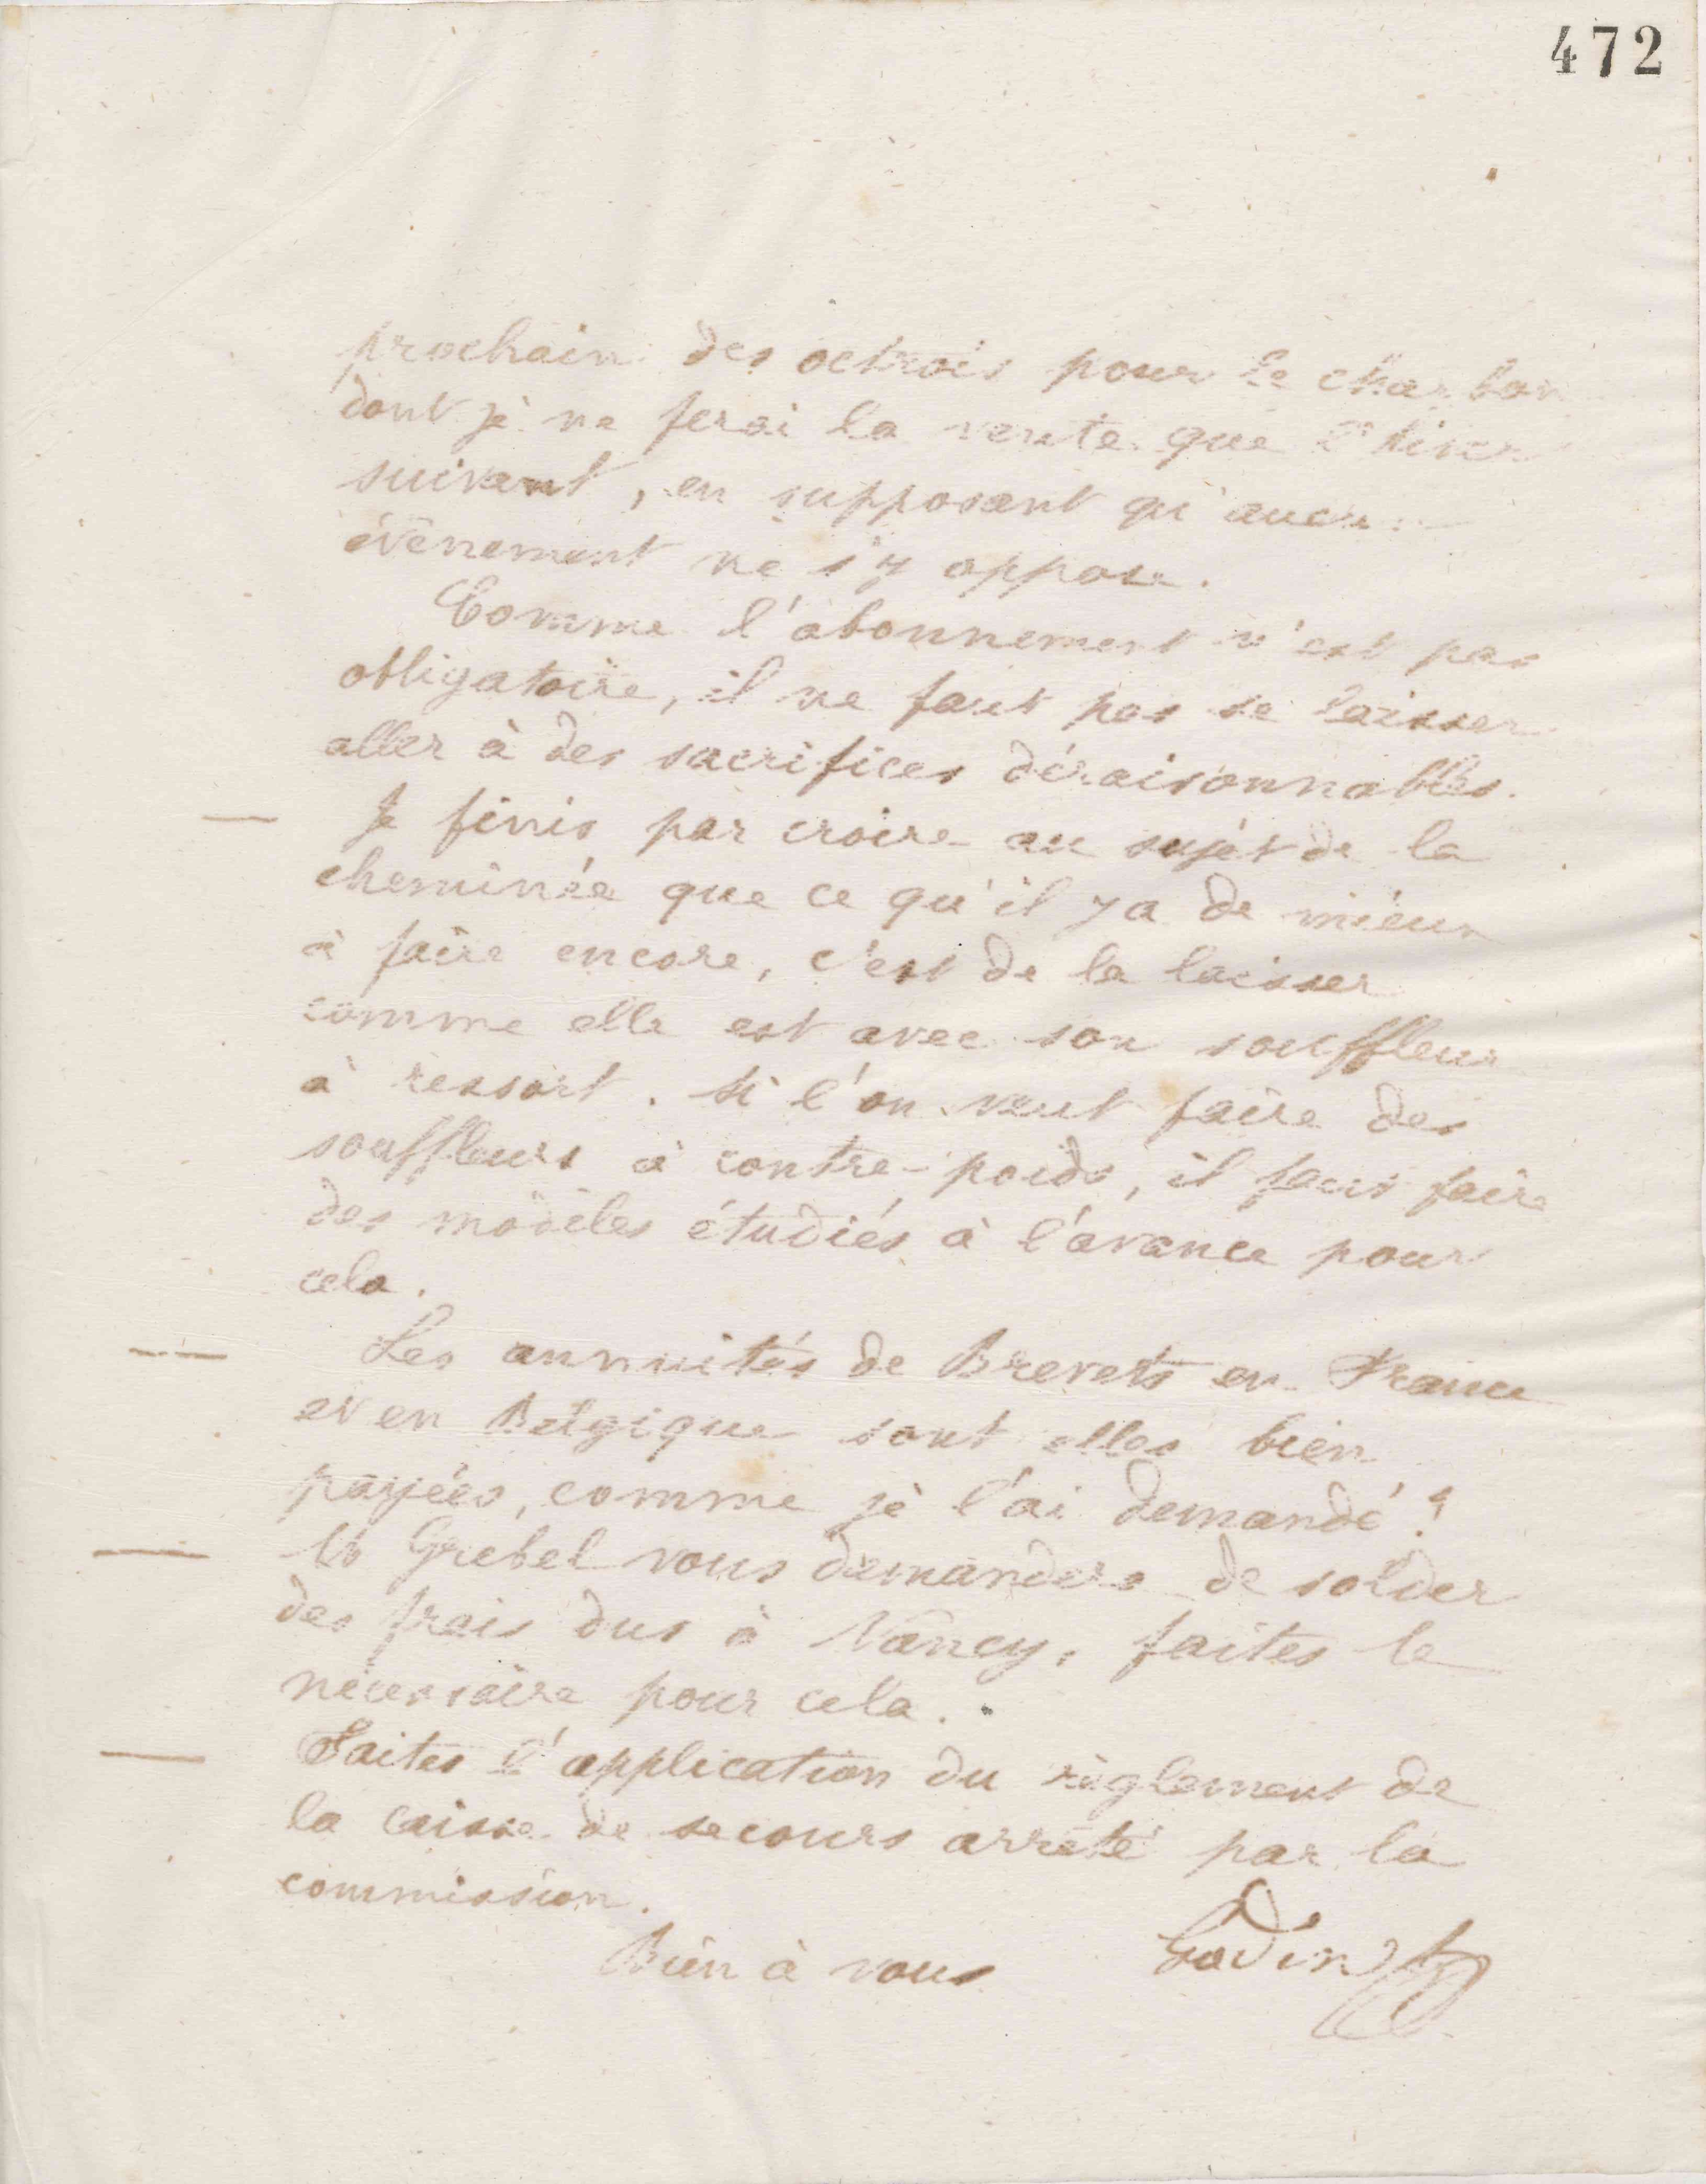 472
prochain des octrois pour le charbon
dont je ne ferai la vente que l'hiver
suivant, en supposant qu'aucun
évènement ne s'y oppose.
Comme l'abonnement n'est pas
obligatoire, il ne faut pas se laisser
aller à des sacrifices déraisonnables.
— Je finis par croire au sujet de la
cheminée que ce qu'il y a de mieux
à faire encore, c'est de la laisser
comme elle est avec son souffleur
à ressort. Si l'on veut faire des
souffleurs à contre-poids, il faut faire
des modèles étudiés à l'avance pour
cela.
— Les annuités de Brevets en France
et en Belgique sont elles bien
payées, comme je l'ai demandé ?
— M Grebel vous demandera de solder
des frais dus à Nancy, faites le
nécessaire pour cela.
— Faites l'application du règlement de
la caisse de secours arrêté par la
commission.
Bien à vous Godin